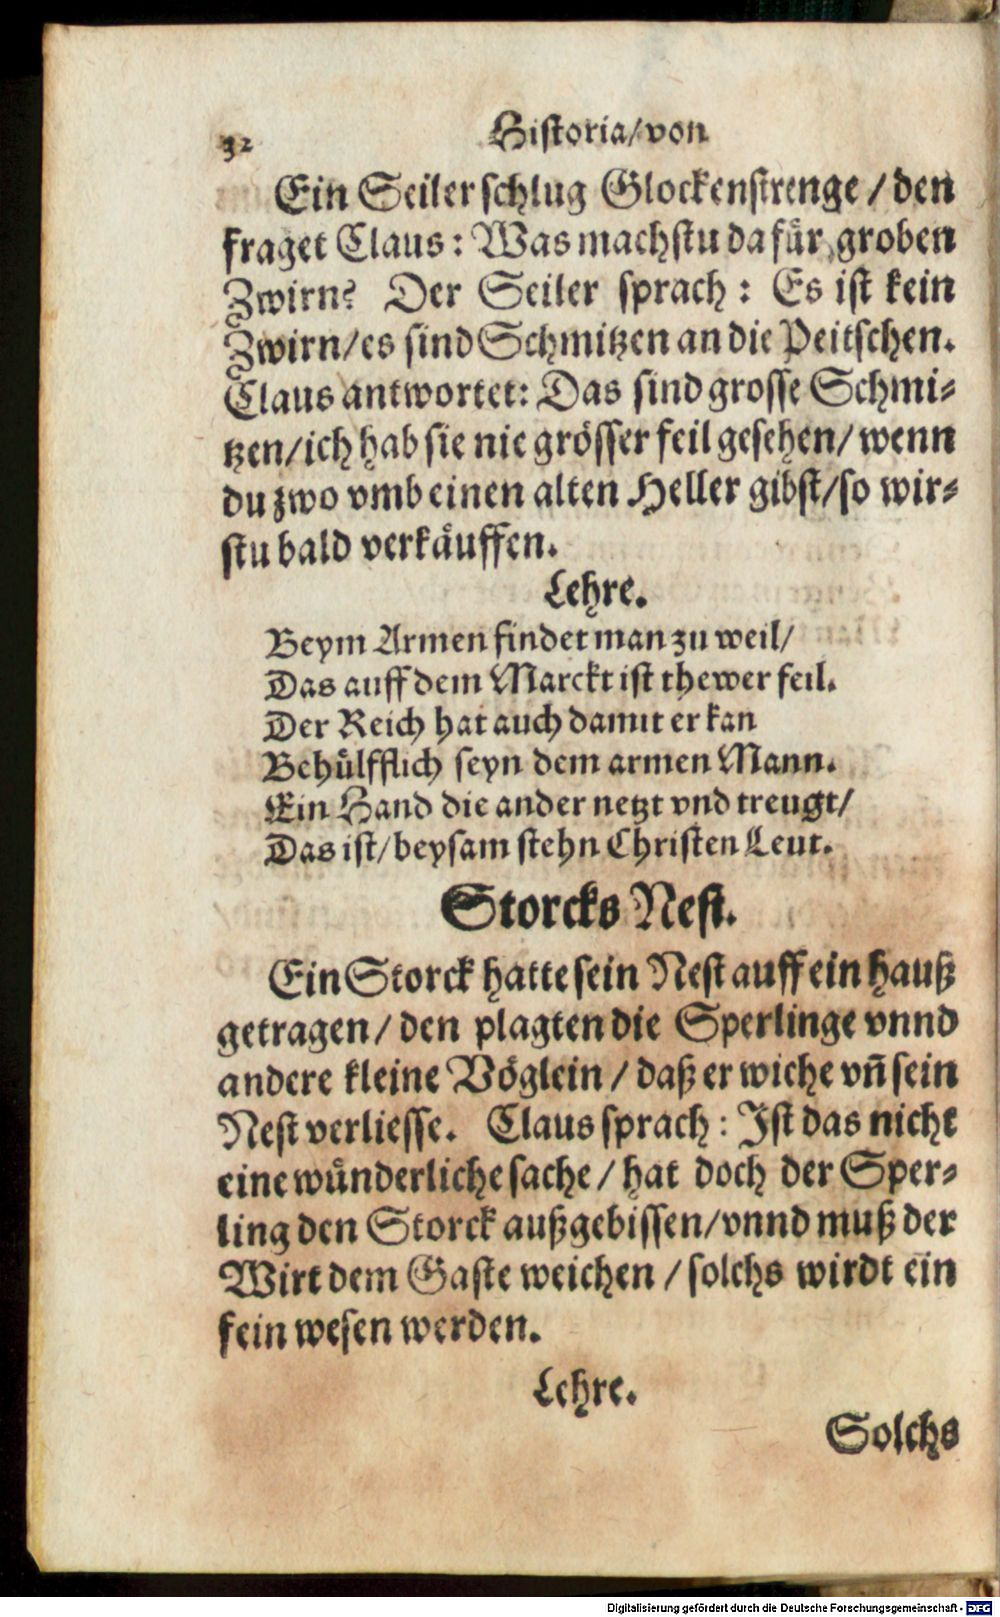 32 Historia/von
Ein Seiler schlug Glockenstrenge / den
fraget Claus: Was machstu da für groben
Zwirn? Der Seiler sprach: Es ist kein
Zwirn/es sind Schmitzen an die Peitschen.
Claus antwortet: Das sind grosse Schmi-
tzen/ich hab sie nie grösser feil gesehen/wenn
du zwo vmb einen alten Heller gibst/so wir-
stu bald verkäuffen.
Lehre.
Beym Armen findet man zu weil/
Das auff dem Marckt ist thewer feil.
Der Reich hat auch damit er kan
Behülfflich seyn dem armen Mann.
Ein Hand die ander netzt vnd treugt/
Das ist/beysam stehn Christen Leut.
Storcks Nest.
Ein Storck hatte sein Nest auff ein hauß
getragen/ den plagten die Sperlinge vnnd
andere kleine Vöglein / daß er wiche vñ sein
Nest verliesse. Claus sprach: Ist das nicht
eine wünderliche sache/ hat doch der Sper-
ling den Storck außgebissen/vnnd muß der
Wirt dem Gaste weichen / solchs wirdt ein
fein wesen werden.
Lehre.
Solchs
Digitalisierung gefördert durch die Deutsche Forschungsgemeinschaft - DFG